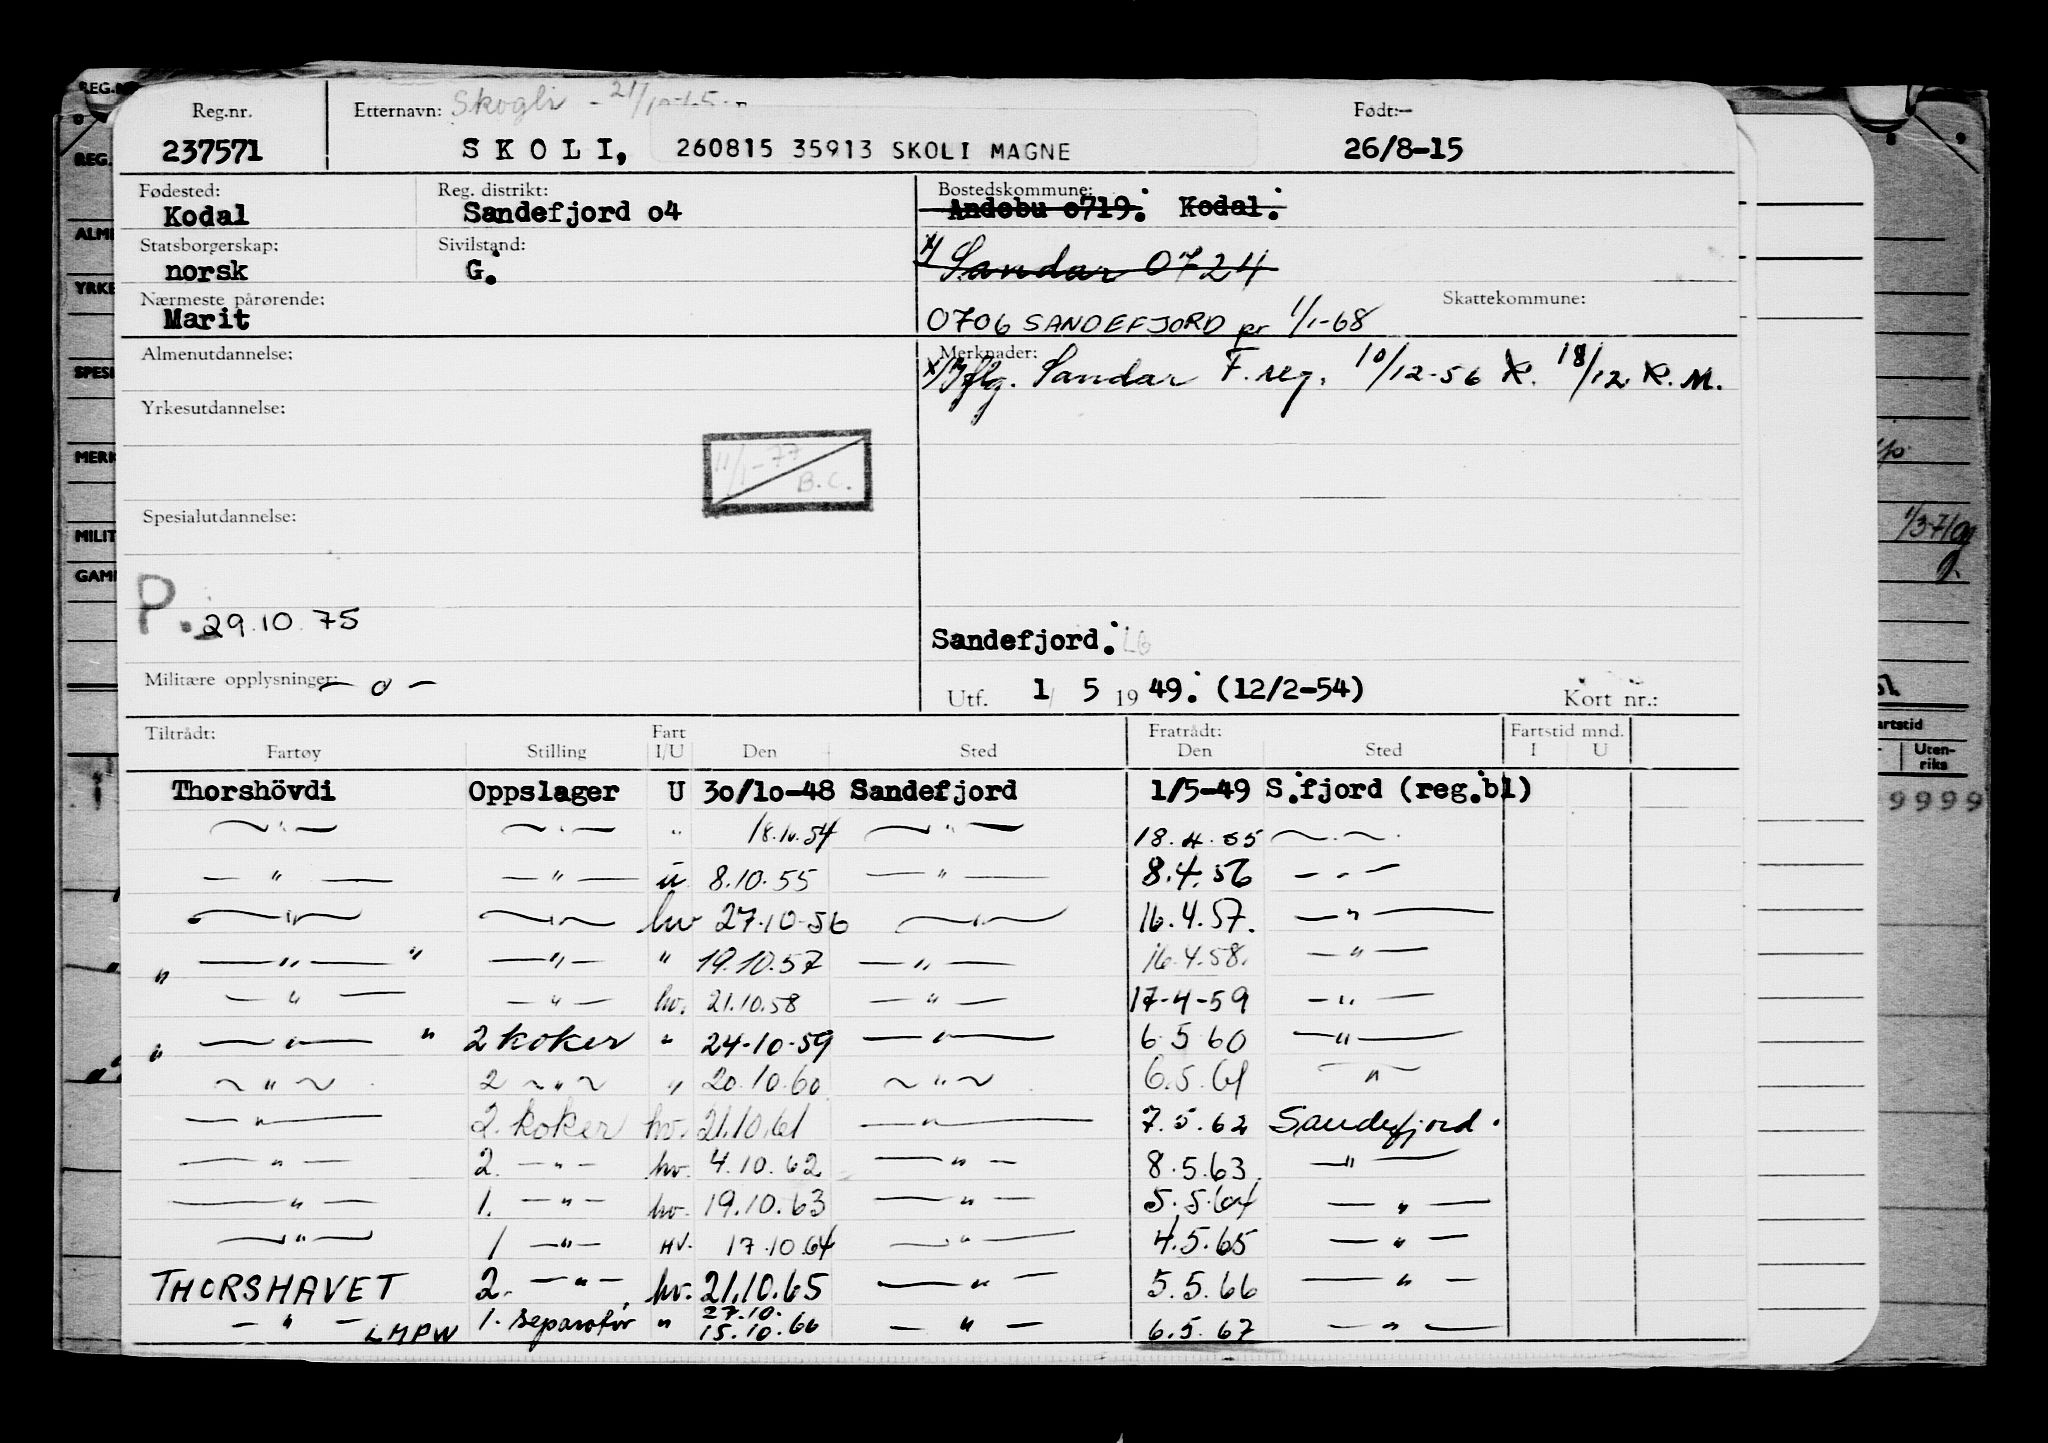 Reg.nr. Etternavn: Skogli - 21/ Født:-
237571 SKOLI, 260815 35913 SKOLI MAGNE 26/8-15
Fødested: Reg. distrikt: Bostedskommune:
Kodal Sandefjord o4 Andebu o719. Kodal.
Statsborgerskap: Sivilstand:
norsk G. x/ Sandar 0724
Nærmeste pårørende: Skattekommune:
Marit 0706 SANDEFJORD pr 1/1-68
Almenutdannelse: Merknader:
x/ Iflg. Sandar F.reg. 10/12-56 K. 18/12 K.M.
Yrkesutdannelse:
11/1-77
B.C.
Spesialutdannelse:
P. 29.10.75
Sandefjord. LG
Militære opplysninger: - o - Utf. 1 5 1949. (12/2-54) Kort nr.:
Tiltrådt: Fart Fratrådt: Fartstid mnd.
Fartøy Stilling I/U Den Sted Den Sted I U
Thorshövdi Oppslager U 30/10-48 Sandefjord 1/5-49 S.fjord (reg.bl)
—"— —"— " 18.10.54 —"— 18.4.55 —"—
—"— —"— u 8.10.55 —"— 8.4.56 —"—
—"— —"— hv 27.10-56 —"— 16.4.57. —"—
" —"— " —"— " 19.10.57 —"— 16.4.58. —"—
—"— —"— hv. 21.10.58 —"— 17-4-59 —"—
" —"— " 2 koker " 24-10-59 —"— 6.5.60 —"—
—"— 2 —"— " 20.10.60 —"— 6.5.61 —"—
—"— 2. koker hv. 21.10.61 —"— 7.5.62 Sandefjord.
—"— 2. —"— hv. 4.10.62 —"— 8.5.63 —"—
—"— 1. —"— hv. 19.10.63 —"— 5.5.64 —"—
—"— 1 —"— HV. 17.10.64 —"— 4.5.65 —"—
THORSHAVET 2. —"— hv. 21.10.65 —"— 5.5.66 —"—
27.10.
—"— LMPW 1. separatør " 15.10.66 —"— 6.5.67 —"—
REG.NR
REG.
ALM
YRKE
SPESI
MERK
MILIT
GAM
1/3-71
artstid
Uten-
riks
9999